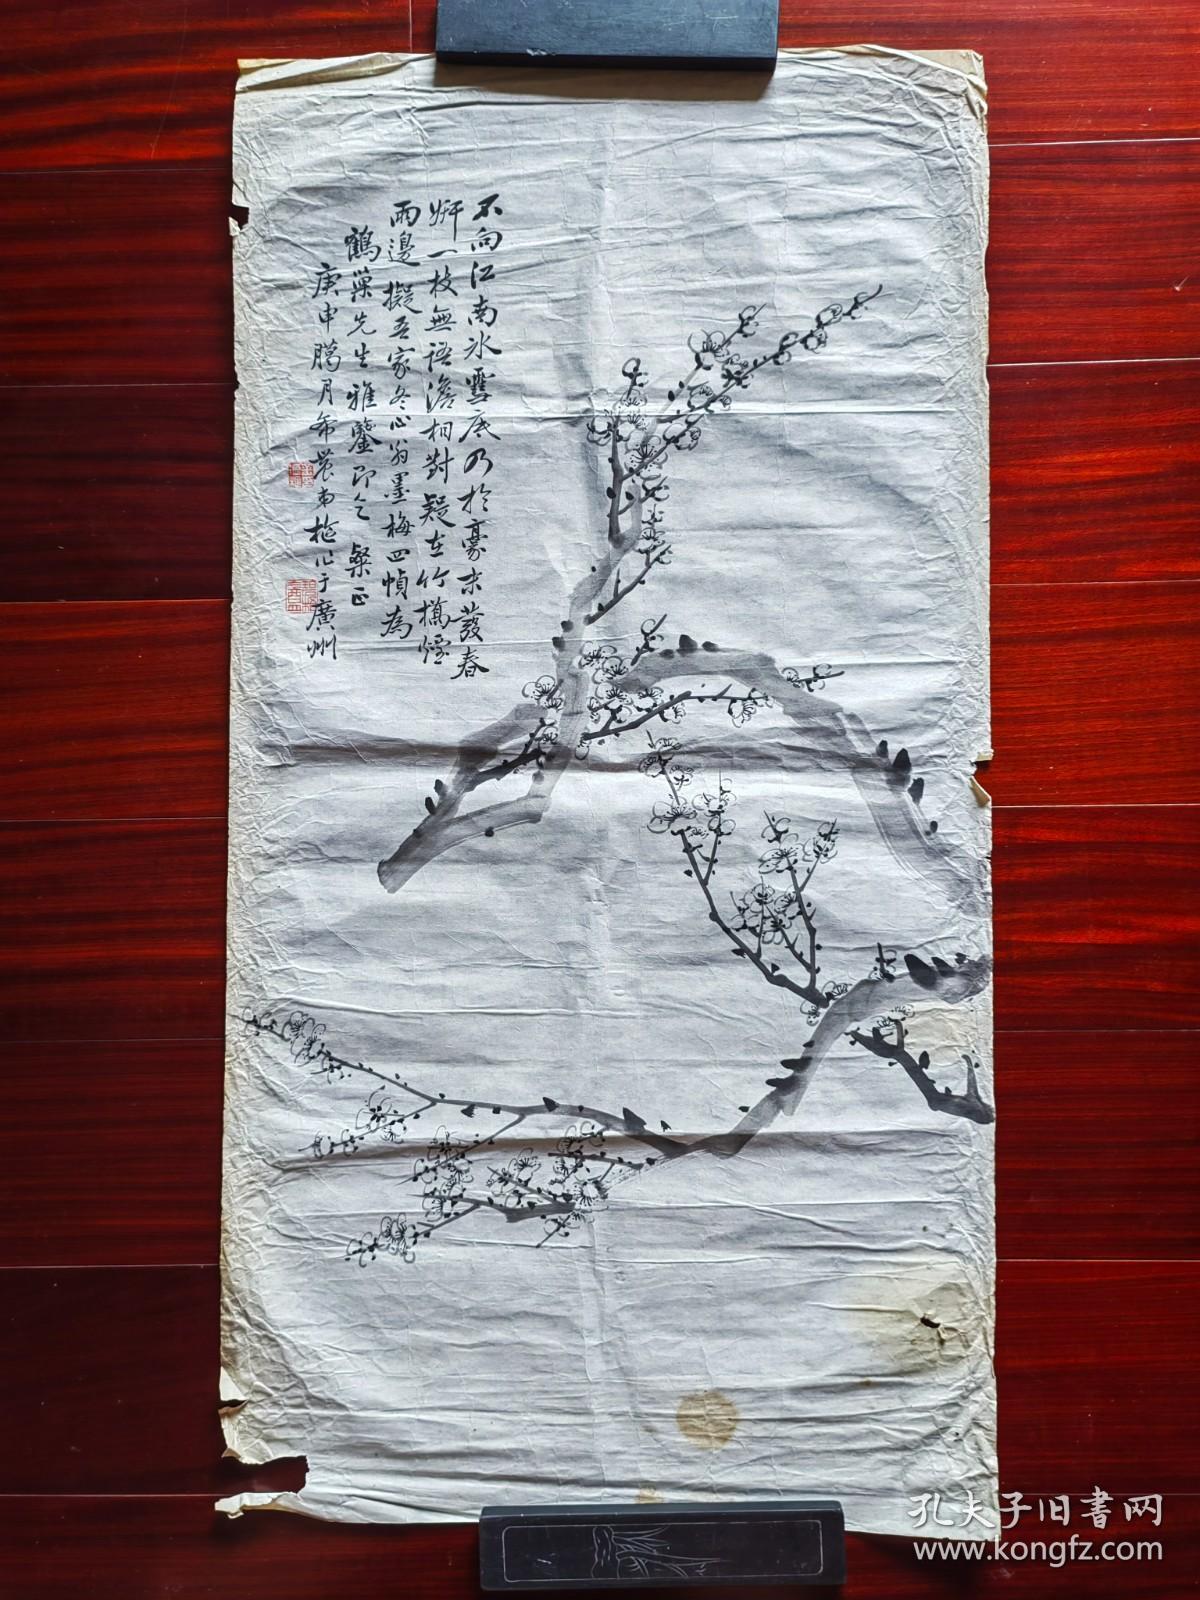 不向江南氷雪底乃於豪末蕟春
妍一枝無語澹相對疑在竹橋煙
雨邊擬吾家冬心翁墨梅四幀為
鶴巢先生雅鑒即乞粲正
庚申臈月希農 作于廣州
孔夫子旧書网
www.kongfz.com